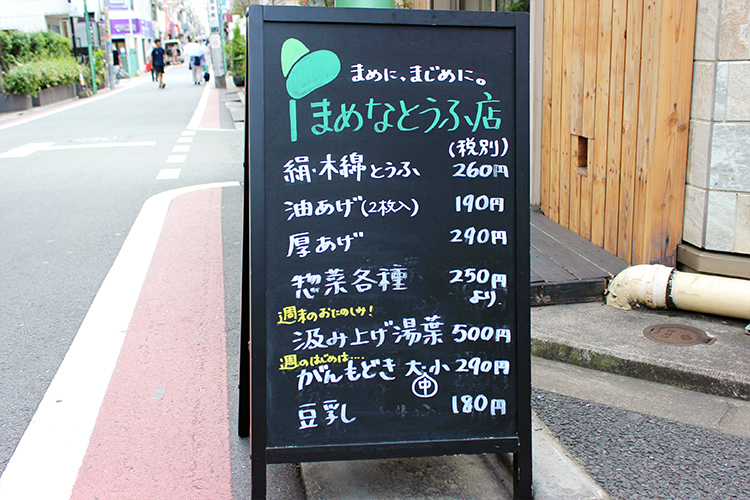 まめに、まじめに。
まめなとうふ店
(税別)
絹・木綿とうふ 260円
油あげ(2枚入) 190円
厚あげ 290円
惣菜各種 250円
より.
週末のおたのしみ!
汲み上げ湯葉 500円
週のはじめは....
がんもどき 大・小 290円
中
豆乳 180円